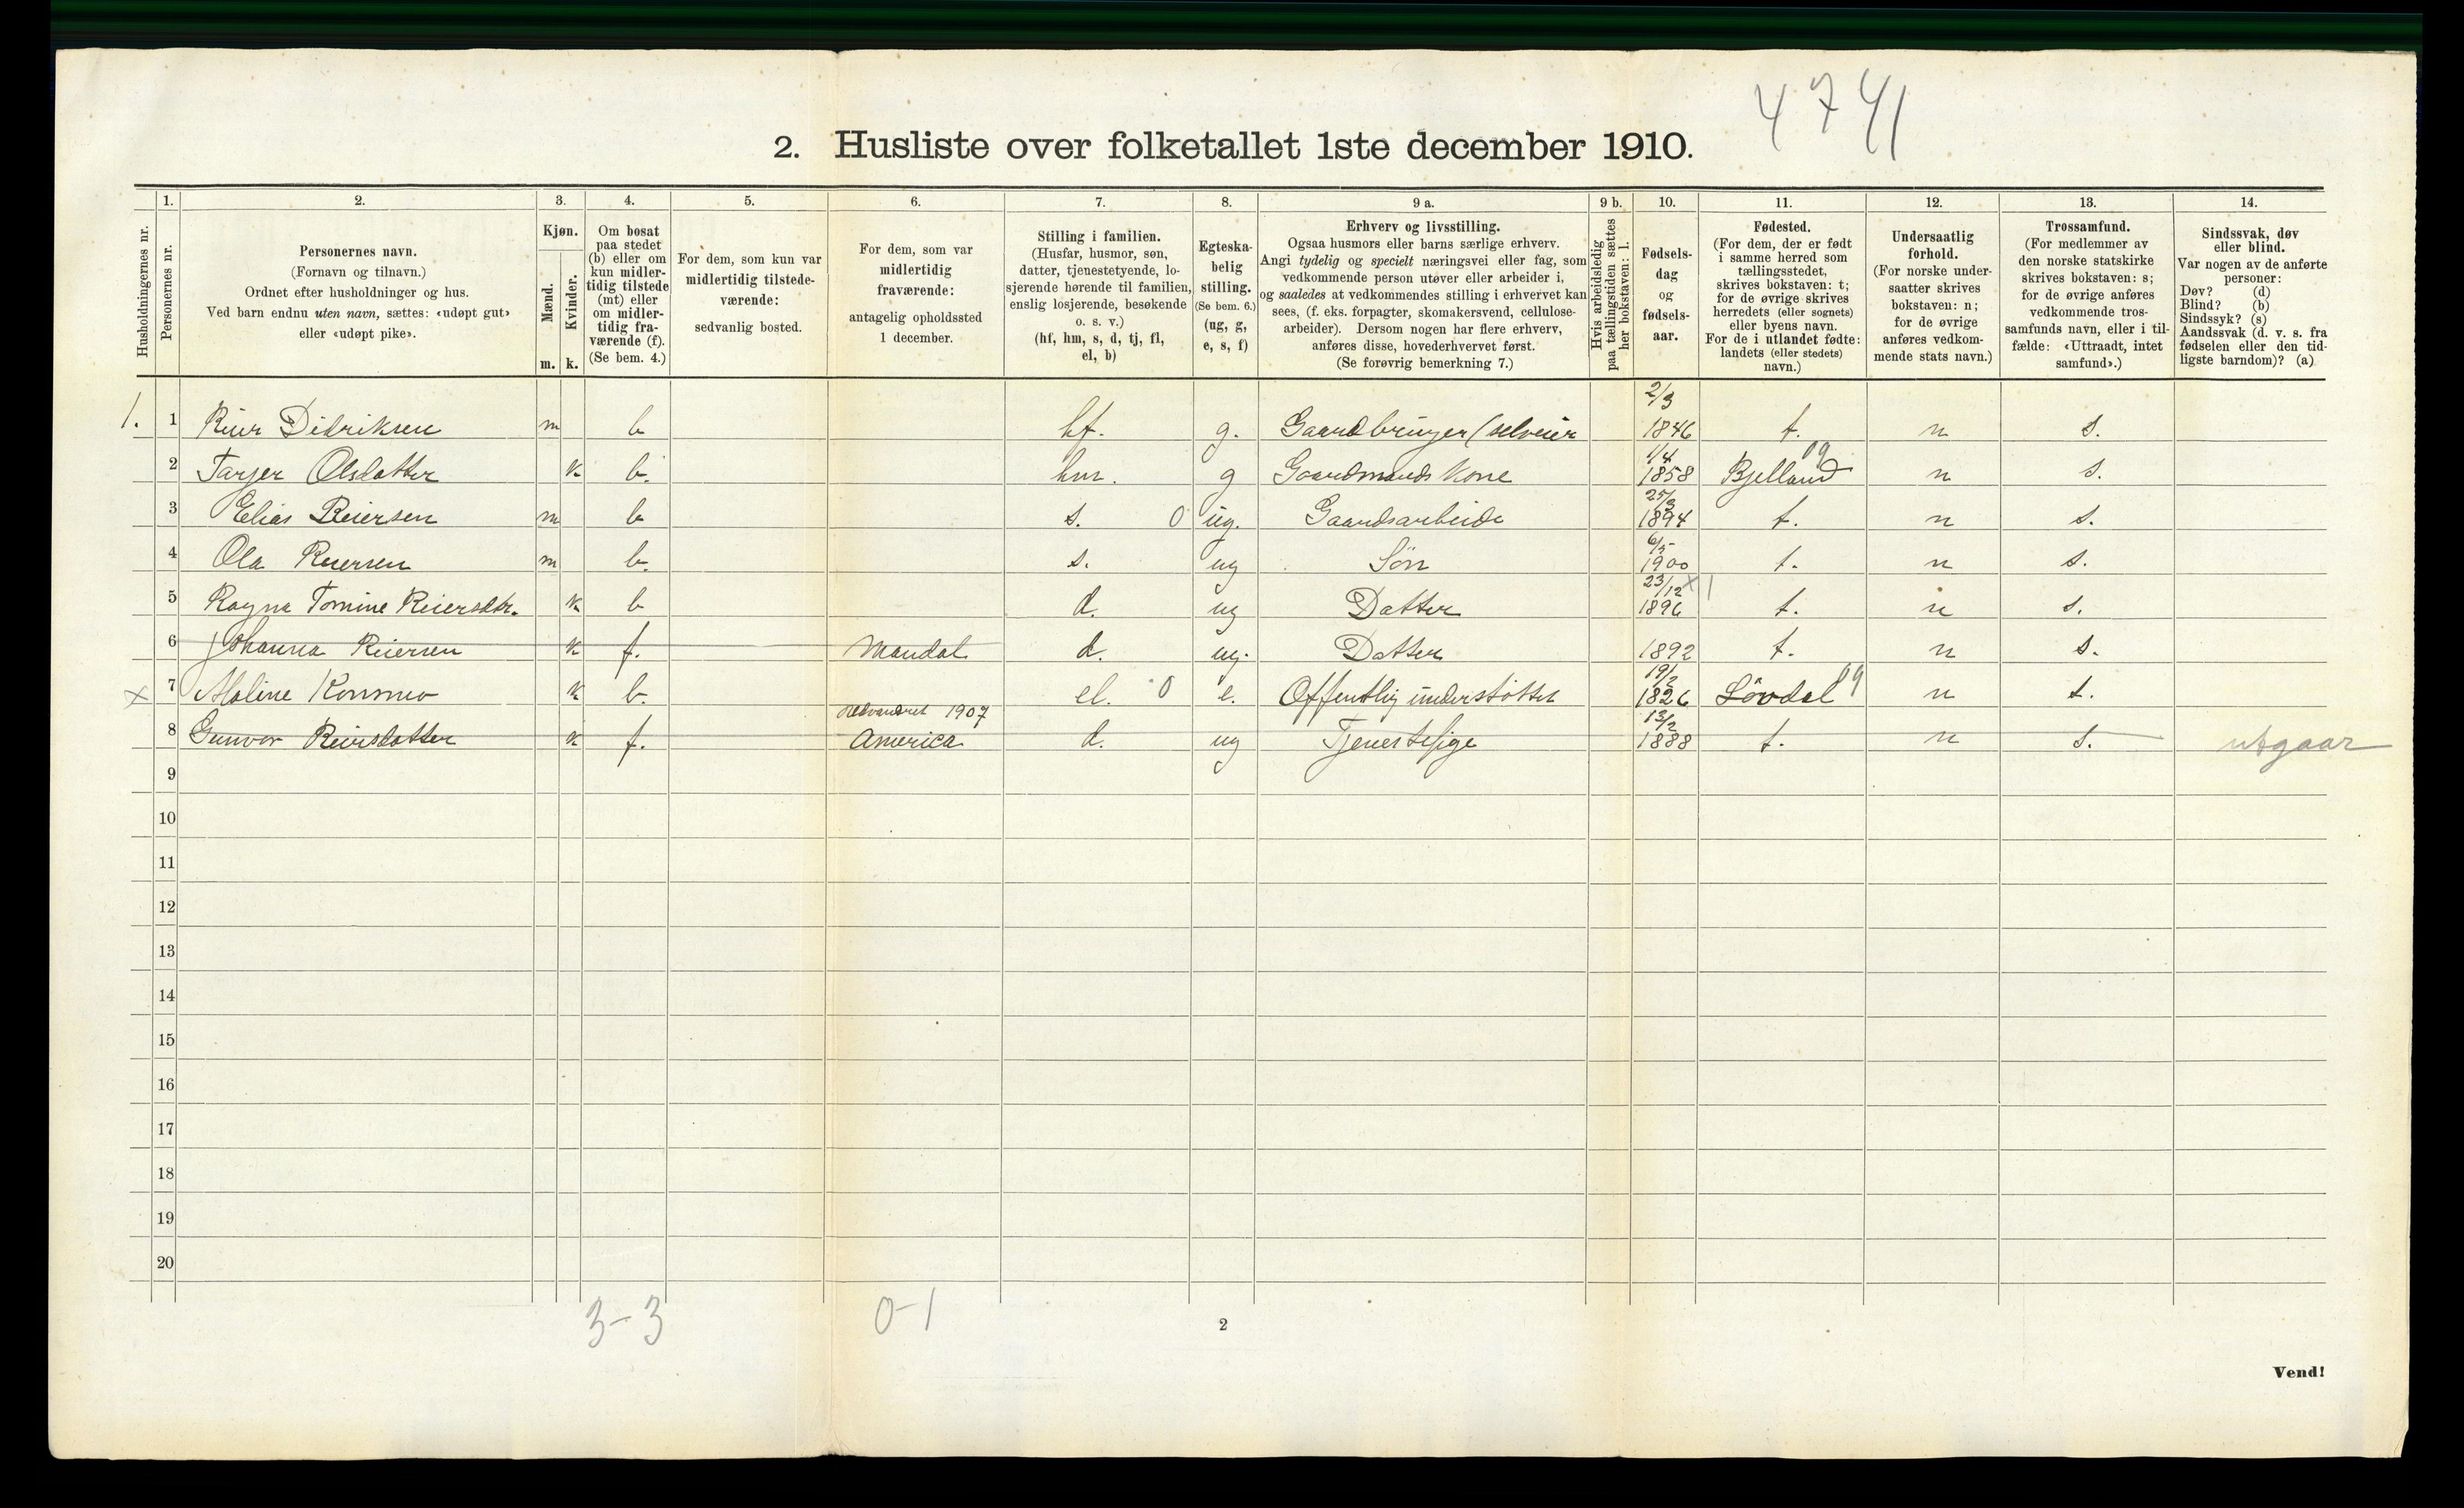 4741
2. Husliste over folketallet 1ste december 1910.
Husholdningernes nr.
1.
Personernes nr.
2.
Personernes navn.
(Fornavn og tilnavn.)
Ordnet efter husholdninger og hus.
Ved barn endnu uten navn, sættes: «udøpt gut»
eller «udøpt pike».
3.
Kjøn.
Mænd.
Kvinder.
m. k.
4.
Om bosat
paa stedet
(b) eller om
kun midler-
tidig tilstede
(mt) eller
om midler-
tidig fra-
værende (f).
(Se bem. 4.)
5.
For dem, som kun var
midlertidig tilstede-
værende:
sedvanlig bosted.
6.
For dem, som var
midlertidig
fraværende:
antagelig opholdssted
1 december.
7.
Stilling i familien.
(Husfar, husmor, søn,
datter, tjenestetyende, lo-
sjerende hørende til familien,
enslig losjerende, besøkende
o. s. v.)
(hf, hm, s, d, tj, fl,
el, b)
8.
Egteska-
belig
stilling.
(Se bem. 6.)
(ug, g,
e, s, f)
9 a.
Erhverv og livsstilling.
Ogsaa husmors eller barns særlige erhverv.
Angi tydelig og specielt næringsvei eller fag, som
vedkommende person utøver eller arbeider i,
og saaledes at vedkommendes stilling i erhvervet kan
sees, (f. eks. forpagter, skomakersvend, cellulose-
arbeider). Dersom nogen har flere erhverv,
anføres disse, hovederhvervet først.
(Se forøvrig bemerkning 7.)
9 b.
Hvis arbeidsledig
paa tællingstiden sættes
her bokstaven: l.
10.
Fødsels-
dag
og
fødsels-
aar.
11.
Fødested.
(For dem, der er født
i samme herred som
tællingsstedet,
skrives bokstaven: t;
for de øvrige skrives
herredets (eller sognets)
eller byens navn.
For de i utlandet fødte:
landets (eller stedets)
navn.)
12.
Undersaatlig
forhold.
(For norske under-
saatter skrives
bokstaven: n;
for de øvrige
anføres vedkom-
mende stats navn.)
13.
Trossamfund.
(For medlemmer av
den norske statskirke
skrives bokstaven: s;
for de øvrige anføres
vedkommende tros-
samfunds navn, eller i til-
fælde: «Uttraadt, intet
samfund».)
14.
Sindssvak, døv
eller blind.
Var nogen av de anførte
personer:
Døv? (d)
Blind? (b)
Sindssyk? (s)
Aandssvak (d. v. s. fra
fødselen eller den tid-
ligste barndom)? (a)
1. 1 Reier Didriksen m b hf. g. Gaardbruger (selveier 2/3 1846 t. n s.
2 Tarjer Olsdatter k b. hm. g Gaardmands Kone 1/4 1858 Bjelland 09 n s.
3 Elias Reiersen m b s. 0 ug. Gaardsarbeide 25/3 1894 t. n s.
4 Ola Reiersen m b. s. ug Sön 6/5 1900 t. n s.
5 Ragna Tomine Reiersdtr. k b d. ug Datter 23/12 1896 x1 t. n s.
6 Johanna Reiersen k f. Mandal d. ug. Datter 1892 t. n s.
x 7 Maline Kommo k b. el. 0 e. Offentlig understöttet 19/2 1826 Lövdal 09 n s.
Udvandret 1907
8 Gunvor Reiersdatter k f. America d. ug Tjenestepige 13/2 1888 t. n s. utgaar
9
10
11
12
13
14
15
16
17
18
19
20
3-3
0-1
2
Vend!